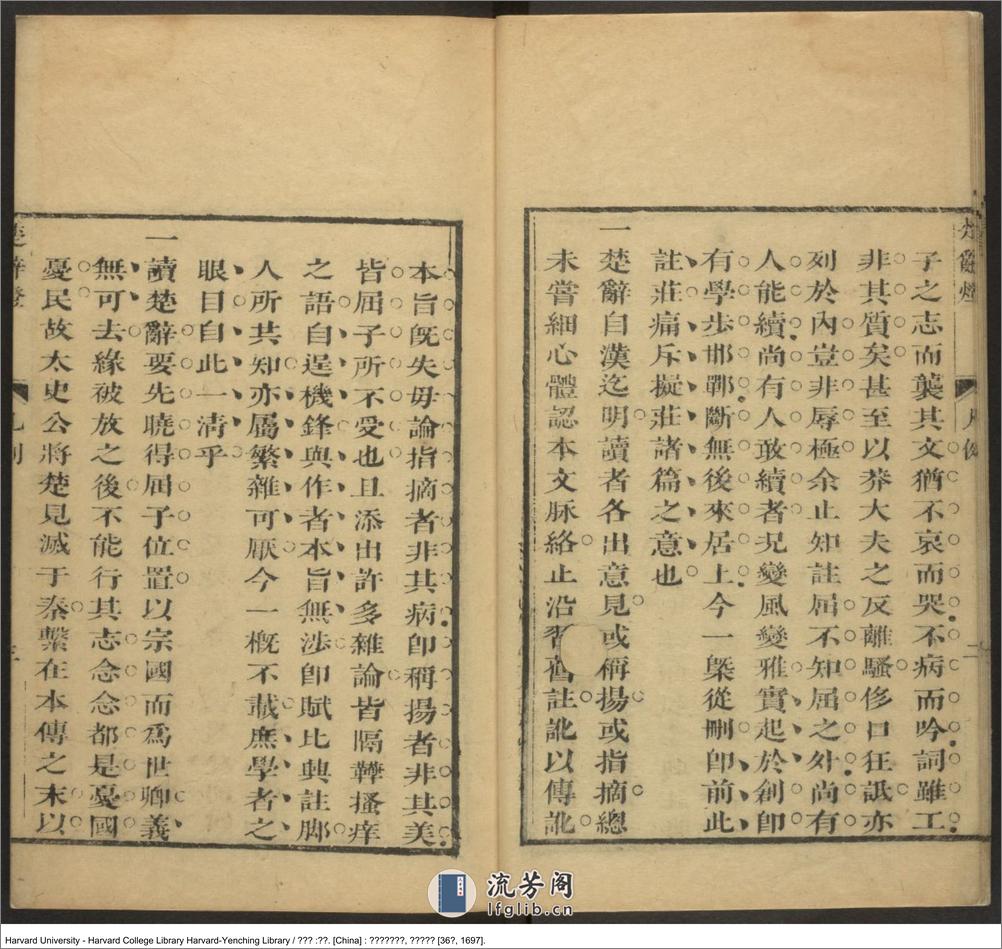 楚辭燈
凡例
二
子之志而襲其文猶不哀而哭不病而吟詞雖工
非其質矣甚至以莽大夫之反離騷侈口狂詆亦
列於內豈非辱極余止知註屈不知屈之外尚有
人能續尚有人敢續者況變風變雅實起於創卽
有學步邯鄲斷無後來居上今一槩從刪卽前此
註莊痛斥擬莊諸篇之意也
一楚辭自漢迄明讀者各出意見或稱揚或指摘總
未嘗細心體認本文脉絡止沿習舊註訛以傳訛
本旨旣失毋論指摘者非其病卽稱揚者非其美
皆屈子所不受也且添出許多雜論皆隔鞾搔痒
之語自逞機鋒與作者本旨無涉卽賦比興註脚
人所共知亦屬繁雜可厭今一槪不載庶學者之
眼目自此一淸乎
一讀楚辭要先曉得屈子位置以宗國而爲世卿義
無可去緣被放之後不能行其志念念都是憂國
憂民故太史公將楚見滅于秦繫在本傳之末以
楚辭燈
凡例
流芳阁
lfglib.cn
Harvard University - Harvard College Library Harvard-Yenching Library / ??? :??. [China] : ???????, ????? [36?, 1697].